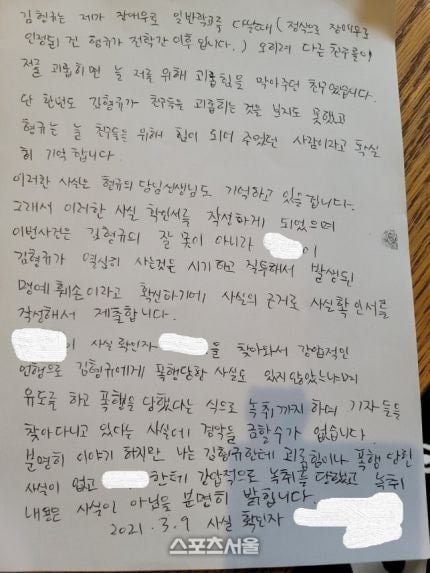 김형규는 제가 장애우로 일반학교를 다닐때 (정식으로 장애우로
인정된건 형규가 전학간 이후 입니다.) 오히려 다른 친구들이
저를 괴롭히면 늘 저를 위해 괴롭힘을 막아주던 친구였습니다.
단 한번도 김형규가 친구들을 괴롭히는 것을 보지도 못했고
형규는 늘 친구들을 위해 힘이 되어 주었던 사람이라고 똑실
히 기억합니다.
이러한 사실은 형규의 담임선생님도 기억하고 있을겁니다.
그래서 이러한 사실 확인서를 작성하게 되었으며
이번사건은 김형규의 잘못이 아니라 이
김형규가 열심히 사는것을 시기하고 질투해서 발생된
명예훼손이라고 확신하기에 사실의 근거로 사실확인서를
작성해서 제출합니다.
이 사실확인자 를 찾아와서 강압적인
언행으로 김형규에게 폭행당한 사실도 있지않았느냐며
유도를 하고 폭행을 당했다는 식으로 녹취까지 하며 기자들을
찾아다니고 있다는 사실에 경악을 금할수가 없습니다
분명히 이야기 하지만 나는 김형규한테 괴롭힘이나 폭행 당한
사실이 없고 한테 강압적으로 녹취를 당했고 녹취
내용은 사실이 아님을 분명히 밝힙니다
2021. 3. 9 사실 확인자
스포츠서울